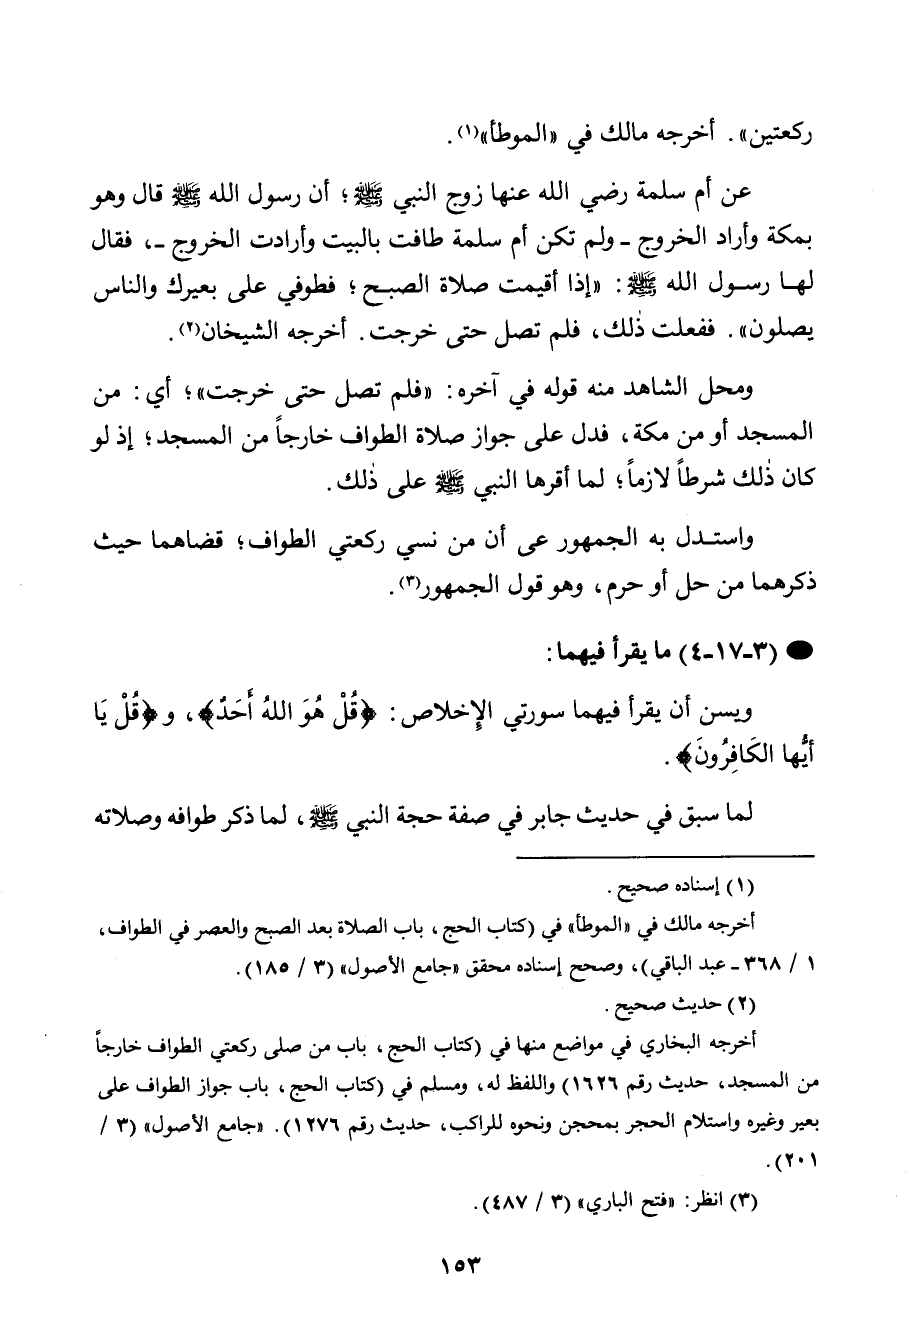 ركعتين». أخرجه مالك في «الموطأ»(١).
عن أم سلمة رضي الله عنها زوج النبي ﷺ؛ أن رسول الله ﷺ قال وهو
بمكة وأراد الخروج ـ ولم تكن أم سلمة طافت بالبيت وأرادت الخروج ـ، فقال
لهـا رسـول الله ﷺ: «إذا أقيمت صلاة الصبـح؛ فطوفي على بعيرك والناس
يصلون». ففعلت ذٰلك، فلم تصل حتى خرجت. أخرجه الشيخان(٢).
ومحل الشاهد منه قوله في آخره: «فلم تصل حتى خرجت»؛ أي: من
المسجد أو من مكة، فدل على جواز صلاة الطواف خارجاً من المسجد؛ إذ لو
كان ذٰلك شرطاً لازماً؛ لما أقرها النبي ﷺ على ذٰلك.
واستـدل به الجمهور عى أن من نسي ركعتي الطواف؛ قضاهما حيث
ذكرهما من حل أو حرم، وهو قول الجمهور(٣).
● (٣-١٧-٤) ما يقرأ فيهما:
ويسن أن يقرأ فيهما سورتي الإخلاص: ﴿قُلْ هُوَ اللهُ أَحَدٌ﴾، و﴿قُلْ يَا
أيُّها الكَافِرُونَ﴾.
لما سبق في حديث جابر في صفة حجة النبي ﷺ، لما ذكر طوافه وصلاته
(١) إسناده صحيح.
أخرجه مالك في «الموطأ» في (كتاب الحج، باب الصلاة بعد الصبح والعصر في الطواف،
١ / ٣٦٨ ـ عبد الباقي)، وصحح إسناده محقق «جامع الأصول» (٣ / ١٨٥).
(٢) حديث صحيح.
أخرجه البخاري في مواضع منها في (كتاب الحج، باب من صلى ركعتي الطواف خارجاً
من المسجد، حديث رقم ١٦٢٦) واللفظ له، ومسلم في (كتاب الحج، باب جواز الطواف على
بعير وغيره واستلام الحجر بمحجن ونحوه للراكب، حديث رقم ١٢٧٦). «جامع الأصول» (٣ /
٢٠١).
(٣) انظر: «فتح الباري» (٣ / ٤٨٧).
١٥٣